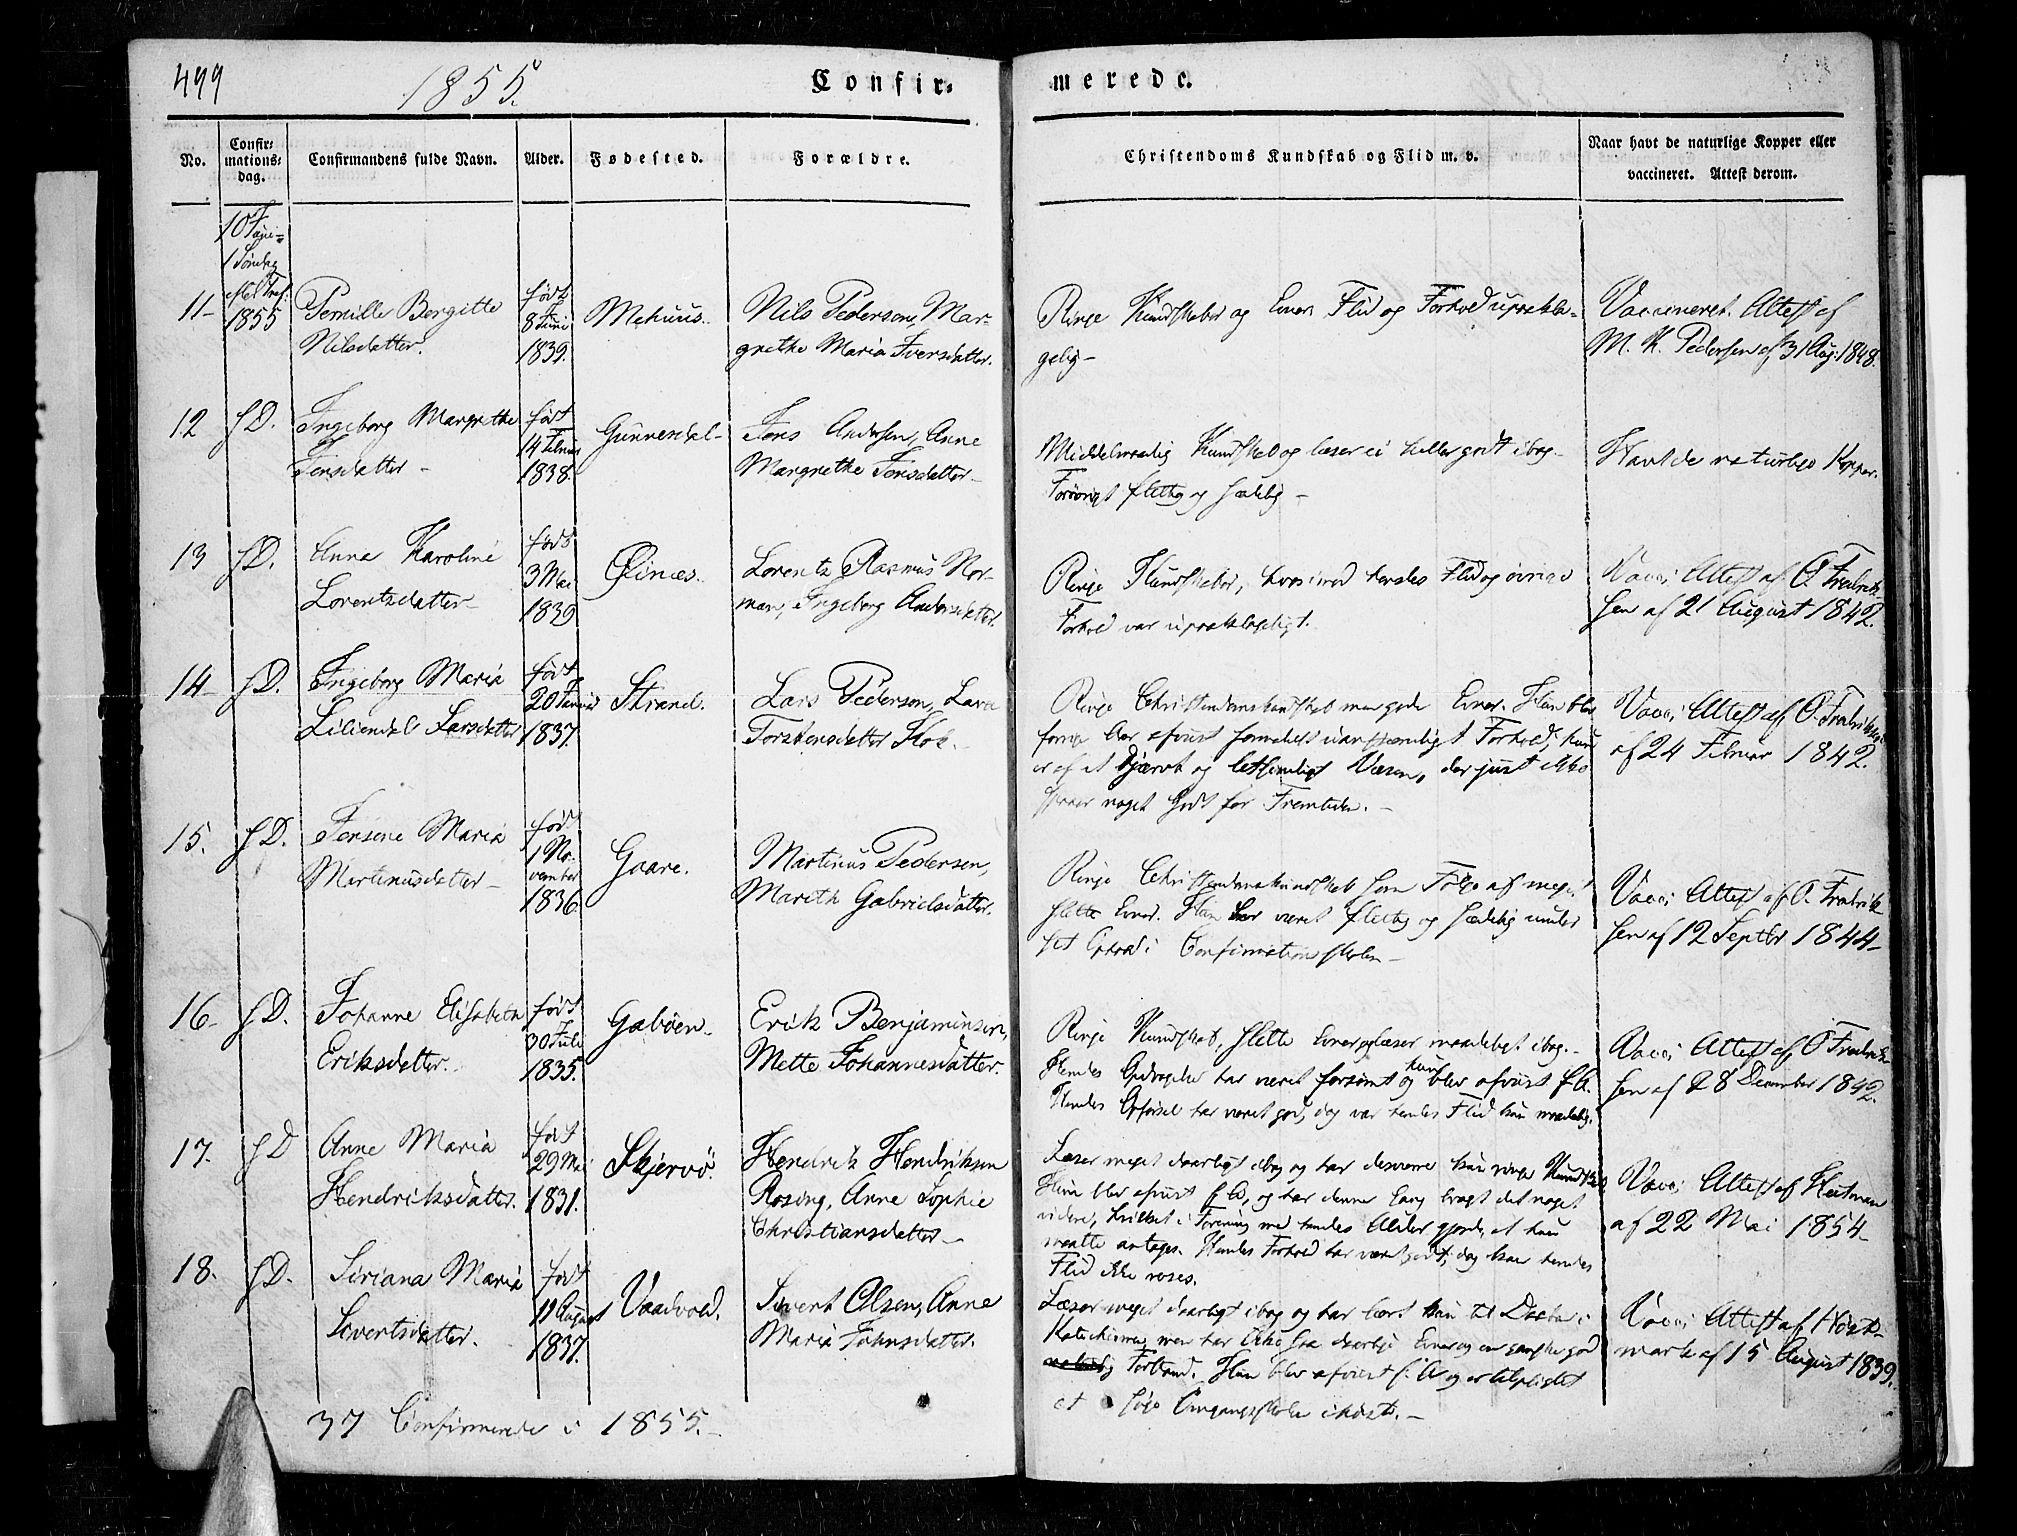 499
1855.
Confir-
merede.
No.
Confir-
mations-
dag.
Confirmandens fulde Navn.
Alder.
Fødested.
Forældre.
Christendoms Kundskab og Flid m. v.
Naar havt de naturlige Kopper eller
vaccineret. Attest derom.
10 Juni
1 Søndag
efter Tref.
1855
11-
Pernille Bergitte
Nilsdatter.
født
8 Juni
1839.
Mehuus.
Nils Pedersen, Mar-
grethe Maria Iversdatter.
Ringe Kundskaber og Evner. Flid og Forhold upaakla-
gelig-
Vaccineret. Attest af
M. K. Pedersen af 31 Aug: 1848.
12
f D.
Ingeborg Margrethe
Jensdatter -
født
14 Februar
1838.
Gunnesdal-
Jens Andersen, Anne
Margrethe Jonsdatter -
Middelmaadig Kundskab og læser ei heller godt i bog-
Forøvrigt flittig og sædelig -
Havt de naturlige Kopper.
13
f D.
Anne Karoline
Lorentsdatter -
født
3 Mai
1839
Øxnæs.
Lorents Rasmus Nor-
man, Ingeborg Andersdatter.
Ringe Kundskaber, hvorimod hendes Flid og øvrige
Forhold var upaaklageligt.
Vacc: Attest af O. Fredrik-
sen af 21 August 1842.
14-
f D.
Ingeborg Maria
Liliendal Larsdatter
født
20 Januar
1837.
Strand.
Lars Pedersen, Lava
Torstensdatter Kok.-
Ringe Christendomskundskab men gode Evner. Hun blev
forrige Aar afviist formedelst uanstændigt Forhold, hun
er af et djærvt og letsindigt Væsen, der just ikke
spaaer noget Godt for Fremtiden. -
Vacc: Attest af O. Fredriksen
af 24 Februar 1842.
15.
f D.
Jensine Maria
Martinusdatter -
født
1 No-
vember
1836.
Gaare.
Martinus Pedersen,
Marith Gabrielsdatter.
Ringe Christendomskundskab som Følge af meget
slette Evner. Hun har været flittig og sædelig under
sit Ophold i Confirmationsskolen -
Vacc: Attest af O. Fredrik-
sen af 12 Septbr 1844-
16-
f D.
Johanne Elisabeth
Eriksdatter.
født
30 Juli
1835.
Gabøen-
Erik Benjaminsen,
Mette Johannesdatter.
Ringe Kundskab, slette Evner og læser maadeligt i bog.-
Hendes Opdragelse har været forsømt og hun blev afviist f. A.
Hendes Opførsel har været god, dog var hendes Flid kun maadelig.
Vacc: Attest af O Fredrik-
sen af 28 December 1842.
17.
f D
Anne Maria
Hendriksdatter.
født
29 Mai
1831.
Skjervö.
Hendrik Hendriksen
Rosing, Anne Sophie
Christiansdatter -
Læser meget daarligt i bog og har desværre kun ringe Kundskab
Hun blev afviist f A, og har denne Gang bragt det noget
videre, hvilket i Forening med hendes Alder gjorde, at hun
maatte antages. Hendes Forhold har været godt, dog kan hendes
Flid ikke roses.
Vacc: Attest af Heitman
af 22 Mai 1854-
18.
f D.
Siriana Maria
Sivertsdatter.
født
19 August
1837.
Vaadvold.
Sivert Olsen, Anne
Maria Johnsdatter.
Læser meget daarligt i bog og har lært kun til Daaben i
Katechismen, men har ikke saa daarlige Evner og en ganske god
Forstand. Hun blev afviist f. A og er tilpligtet
at søge Omgangsskolen i høst. -
Vacc: Attest af Norde-
mark af 15 August 1839.
37 Confirmerede i 1855.-